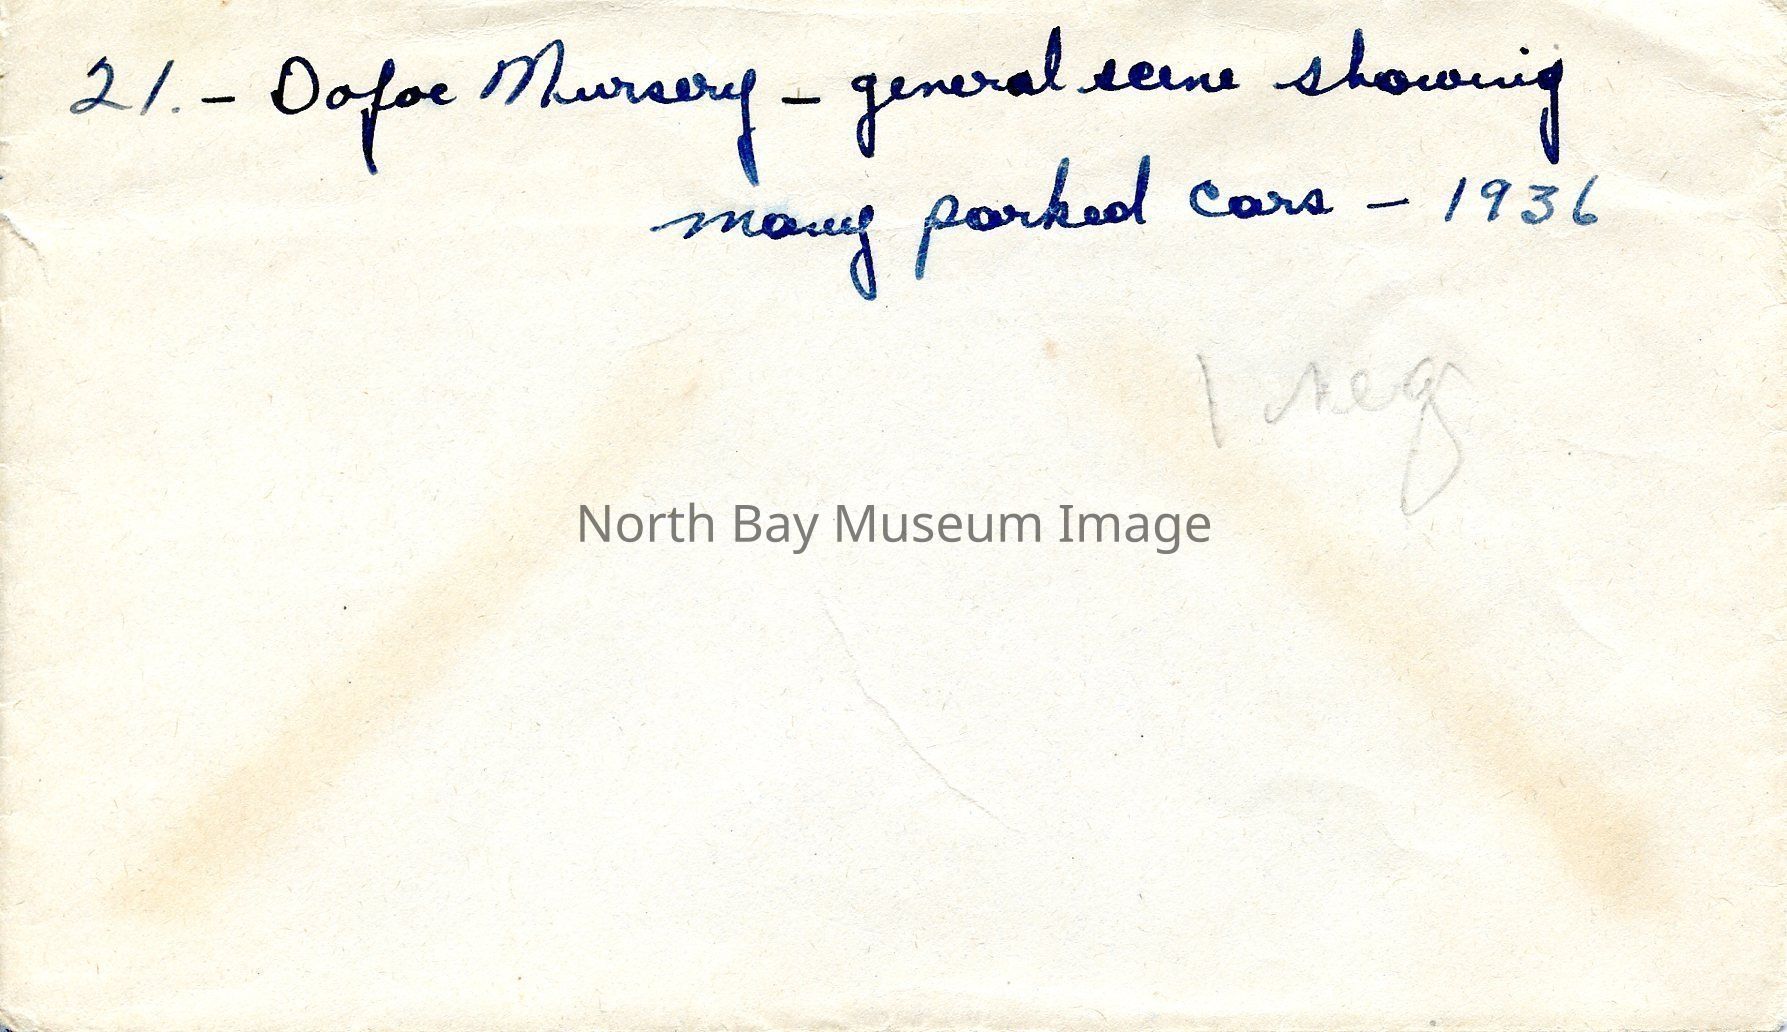 21. - Dafoe Nursery - general scene showing
many parked cars - 1936
1 neg
North Bay Museum Image